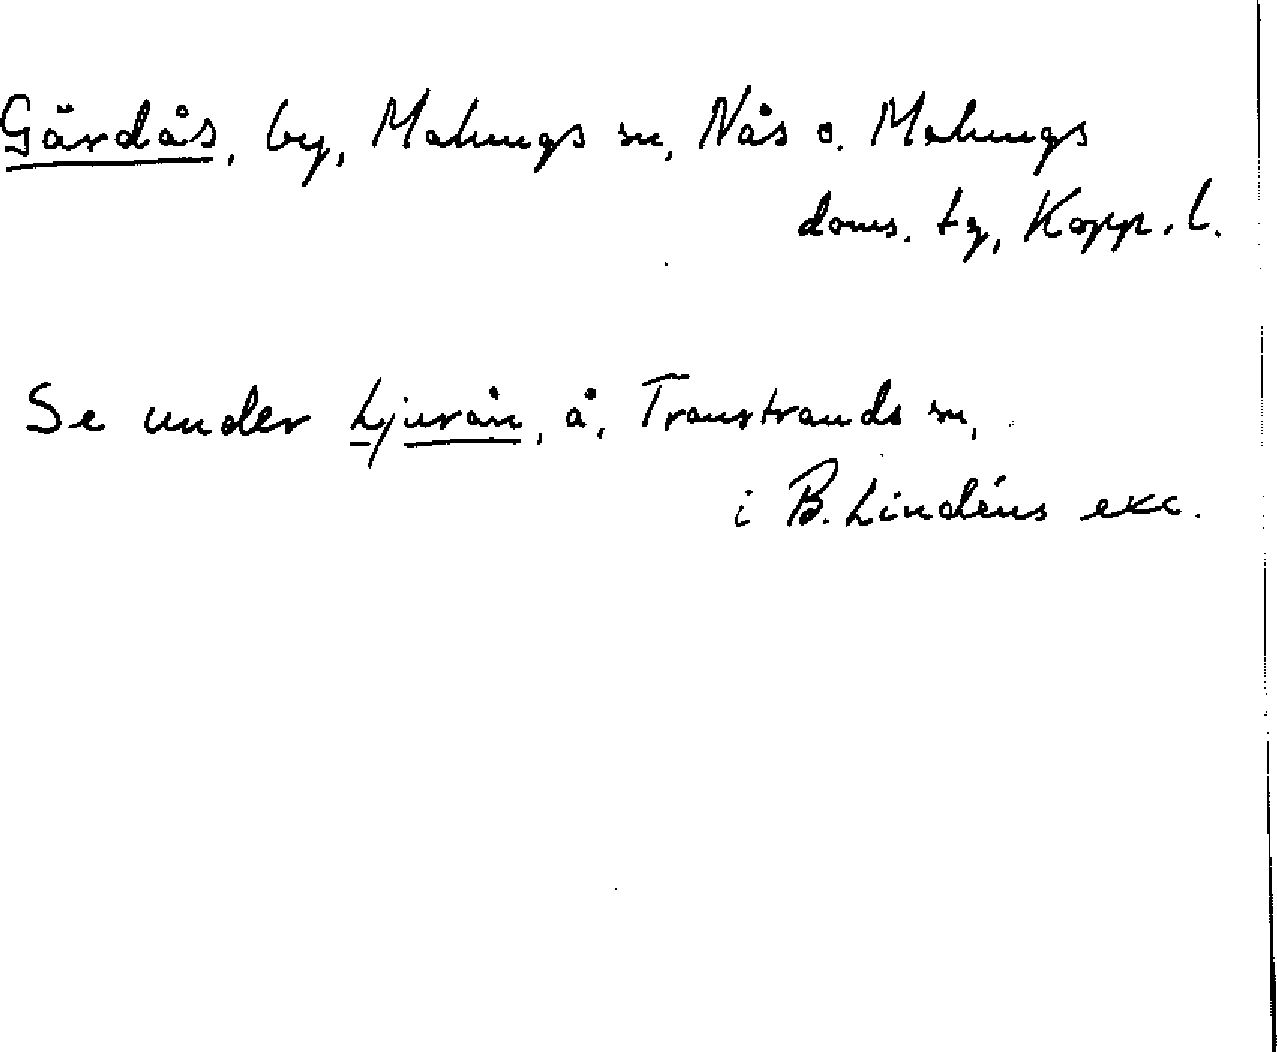 Gärdås, by, Malungs sn, Nås o. Malungs
doms. tg, Kopp. l.
Se under Ljurån, å, Transtrands sn,
i B. Lindéns exc.